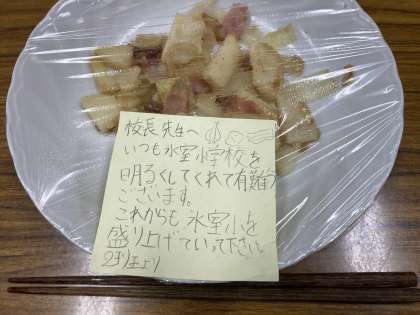 校長先生へ
いつも氷室小学校を
明るくしてくれて有難う
ございます。
これからも氷室小を
盛り上げていって下さい。